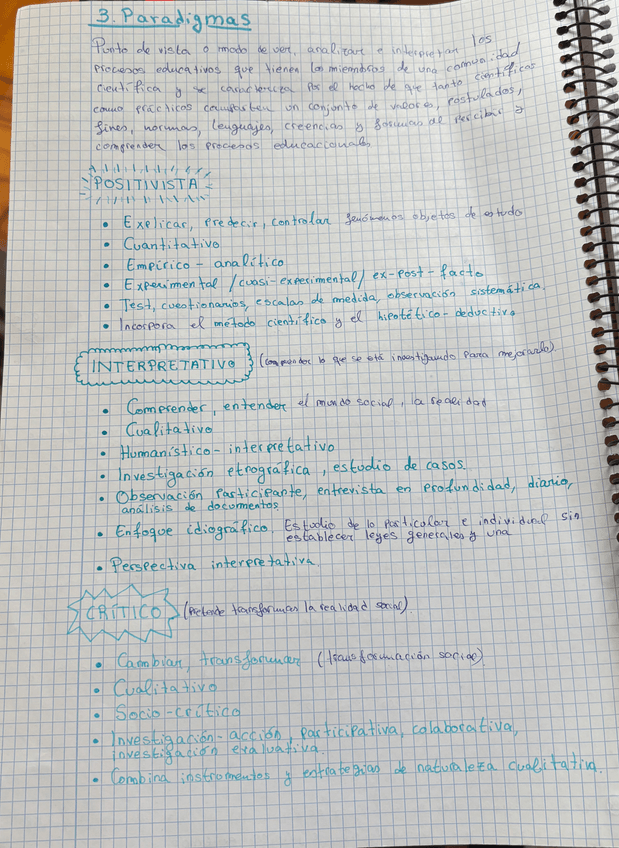 3. Paradigmas
Punto de vista o modo de ver, analizar e interpretar los
procesos educativos que tienen los miembros de una comunidad
científica y se caracteriza por el hecho de que tanto científicos
como prácticos comparten un conjunto de valores, postulados,
fines, normas, lenguajes, creencias y formas de percibir y
comprender los procesos educacionales
POSITIVISTA
• Explicar, predecir, controlar fenómenos objetos de estudio
• Cuantitativo
• Empírico - analítico
• Experimental / cuasi-experimental / ex-post-facto
• Test, cuestionarios, escalas de medida, observación sistemática.
• Incorpora el método científico y el hipotético-deductivo
INTERPRETATIVO (comprender lo que se está investigando para mejorarlo).
• Comprender, entender el mundo social, la realidad
• Cualitativo
• Humanístico - interpretativo
• Investigación etnográfica, estudio de casos.
• Observación participante, entrevista en profundidad, diario,
análisis de documentos
• Enfoque idiográfico. Estudio de lo particular e individual sin
establecer leyes generales y una
• Perspectiva interpretativa.
CRÍTICO (Pretende transformar la realidad social).
• Cambiar, transformar (transformación social)
• Cualitativo
• Socio-crítico
• Investigación-acción, participativa, colaborativa,
investigación evaluativa.
• Combina instrumentos y estrategias de naturaleza cualitativa.